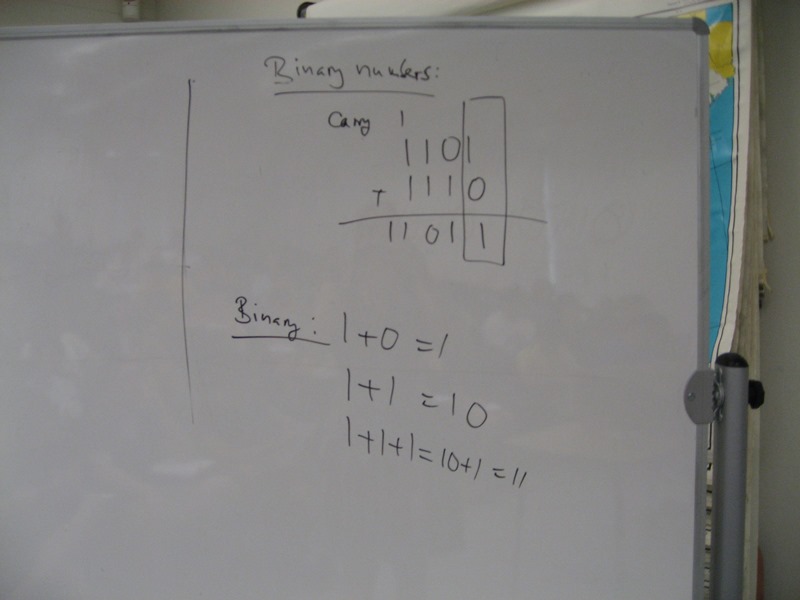 Binary numbers:
Carry 1
1101
+ 1110
11011
Binary: 1+0=1
1+1=10
1+1+1=10+1=11